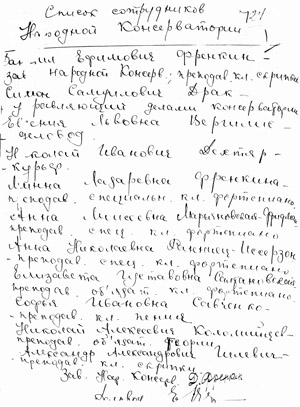 Список сотрудников 72
Народной Консерватории
Ефимович Френкин-
зав народной Консерв; преподав. кл. скрипки
Симон Самуилович Драк-
Управляющий делами консерватории
Евгения Львовна
Николай Иванович
-курьер.
Лазаревна Френкина-
преподав. специальн. кл. фортепиано.
Анна Моисеевна
преподав. спец. кл. фортепиано
Анна Николаевна
-преподав. спец. кл. фортепиано
Елизавета Густавовна
преподав. обязат. кл. фортепиано.
Софья Ивановна Савченко-
-преподав. кл. пения
Николай Алексеевич Коломийцев-
преподав. обязат. теории
Александр Александрович
-преподав. кл. скрипки
Зав. Нар. Консерв